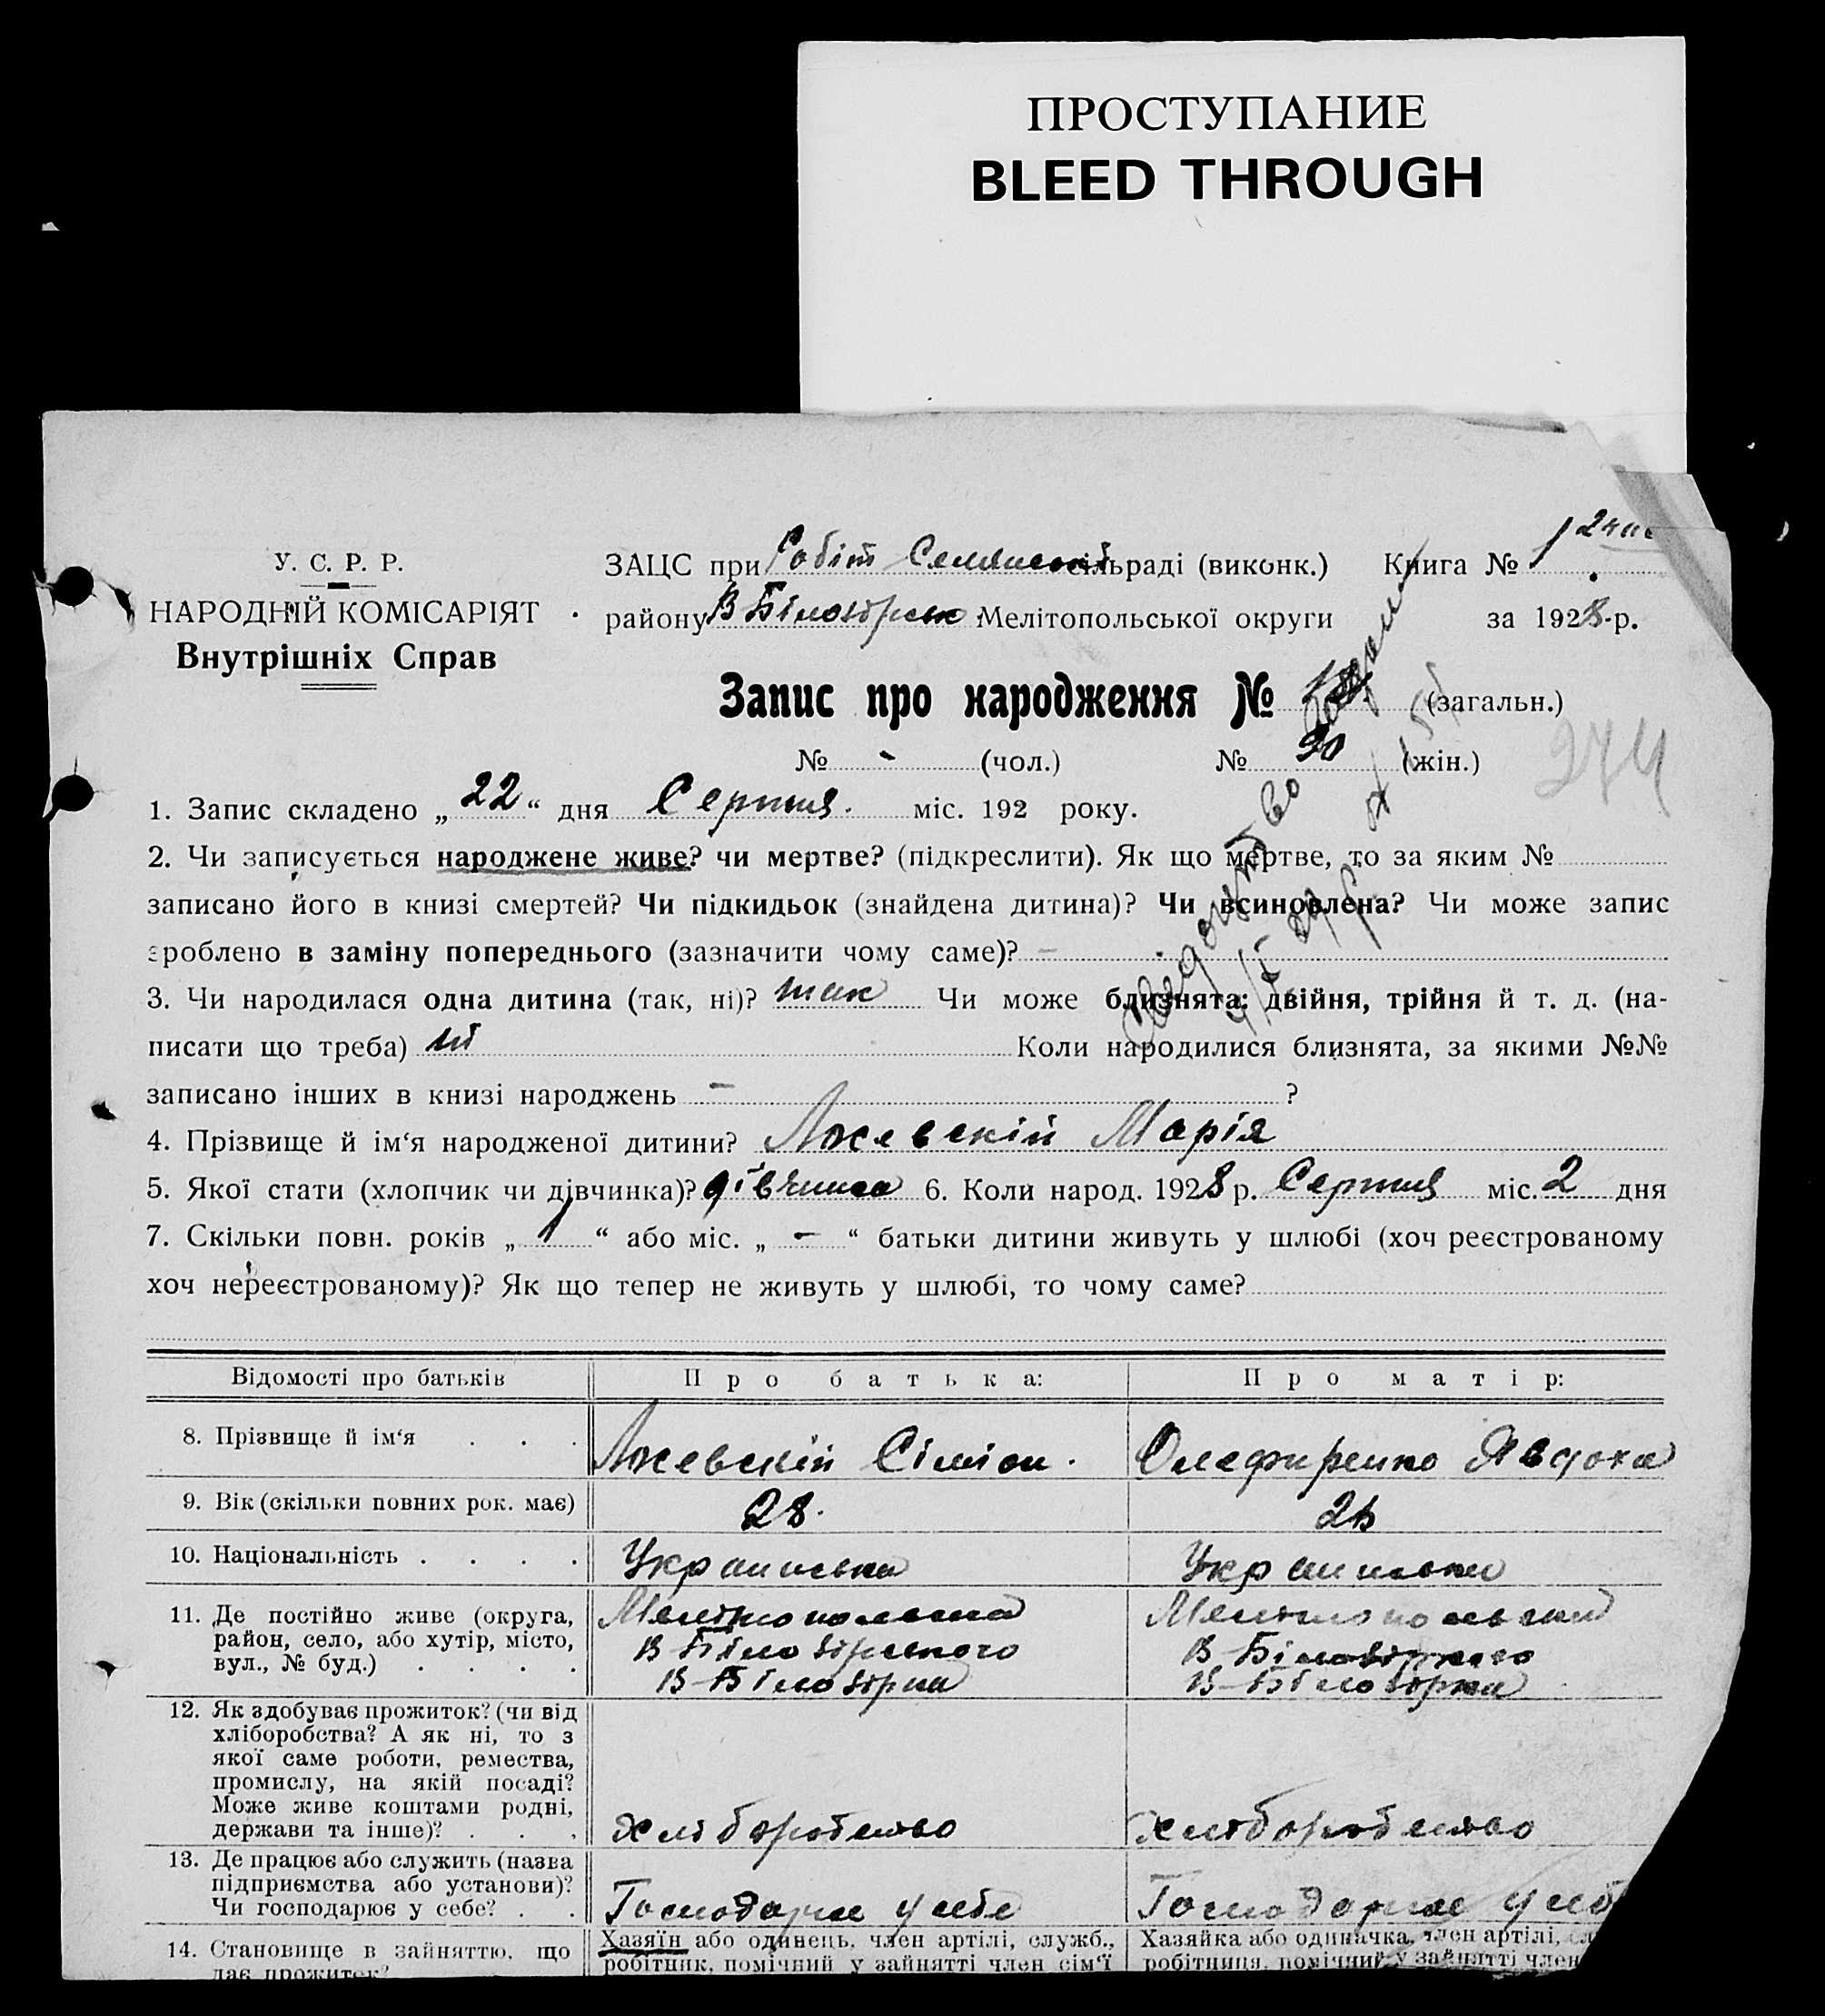 ПРОСТУПАНИЕ
BLEED THROUGH
У. С. Р. Р.
НАРОДНІЙ КОМІСАРІЯТ
Внутрішніх Справ
ЗАЦС при сільраді (виконк.) Книга № 1
району В Білозірськ Мелітопольської округи за 1928 р.
Запис про народження № (загальн.)
№ - (чол.) № 90 (жін.)
274
1. Запис складено „ 22 “ дня Серпня міс. 192 року.
2. Чи записується народжене живе? чи мертве? (підкреслити). Як що мертве, то за яким №
записано його в книзі смертей? Чи підкидьок (знайдена дитина)? Чи всиновлена? Чи може запис
зроблено в заміну попереднього (зазначити чому саме)? –
3. Чи народилася одна дитина (так, ні)? так Чи може близнята: двійня, трійня й т. д. (на-
писати що треба) ні Коли народилися близнята, за якими №№
записано інших в книзі народжень – ?
4. Прізвище й ім‘я народженої дитини? Лжевскій Марія
5. Якої стати (хлопчик чи дівчинка)? дівчинка 6. Коли народ. 1928 р. Серпня міс. 2 дня
7. Скільки повн. років „ 1 “ або міс. „ – “ батьки дитини живуть у шлюбі (хоч реєстрованому
хоч нереєстрованому)? Як що тепер не живуть у шлюбі, то чому саме?
Відомості про батьків Про батька: Про матір:
8. Прізвище й ім‘я . . . Лжевскій Сіміон. Олефиренко Явдоха
9. Вік (скільки повних рок. має) 28.
10. Національність . . . . Украинська Украинська
11. Де постійно живе (округа,
район, село, або хутір, місто,
вул., № буд.) . . . .
Мелітопольська
В Білозірського
В-Білозірка
Мелітопольська
В-Білозірського
В-Білозірка
12. Як здобуває прожиток? (чи від
хліборобства? А як ні, то з
якої саме роботи, ремества,
промислу, на якій посаді?
Може живе коштами родні,
держави та інше)? . . .
хліборобство
хліборобство
13. Де працює або служить (назва
підприємства або установи)?
Чи господарює у себе? . .
Господарює у себе
Господарює у себ
14. Становище в зайняттю, що
дає прожиток?
Хазяїн або одинець, член артілі, служб.,
робітник, помічний у зайнятті член сім‘ї
Хазяйка або одиначка, член артілі, сл
робітниця, помічниця у зайнятті член